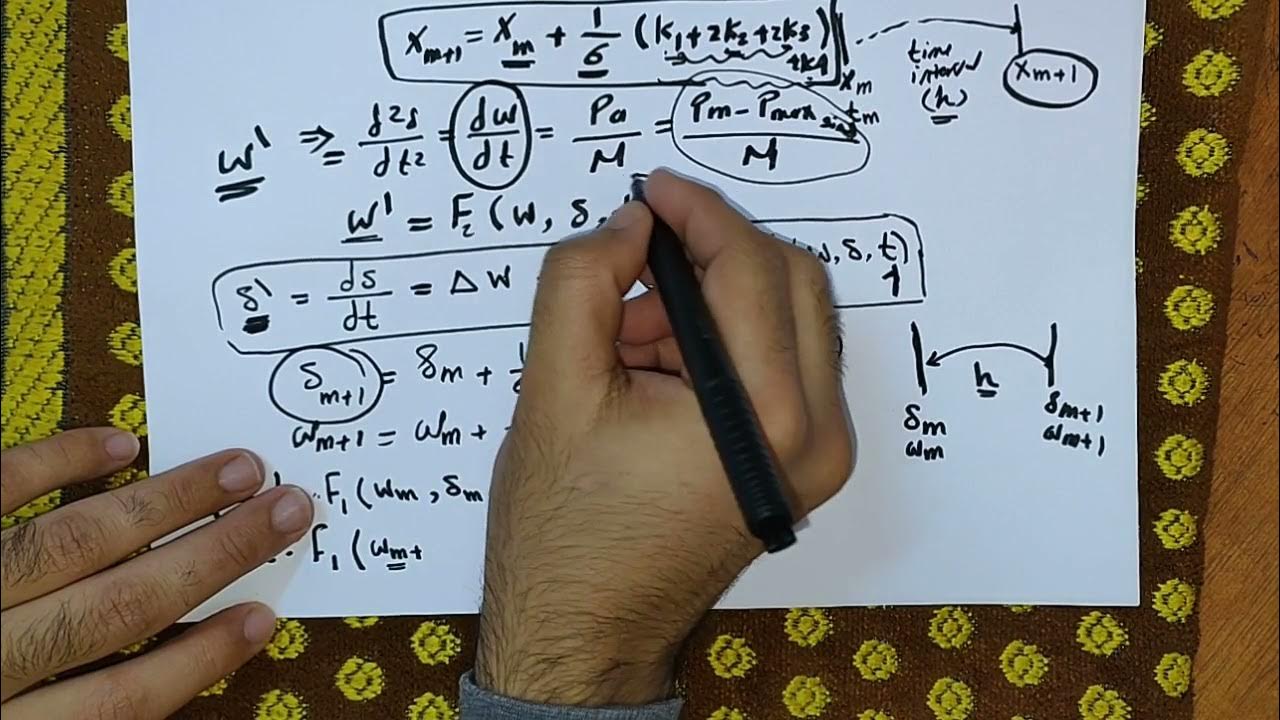 x_{m+1} = x_m + 1/6 (k_1 + 2k_2 + 2k_3 + k_4)
x_m
t_m
time interval (h)
x_{m+1}
w' ⇒ d²δ/dt² = dw/dt = Pa/M = (Pm - Pmax sin)/M
w' = F_2 (w, δ,
δ' = dδ/dt = Δw w, δ, t)
1
δ_{m+1} = δ_m + 1/
w_{m+1} = w_m +
h
δ_m
w_m
δ_{m+1}
w_{m+1}
. F_1 (w_m, δ_m
. F_1 (w_m +